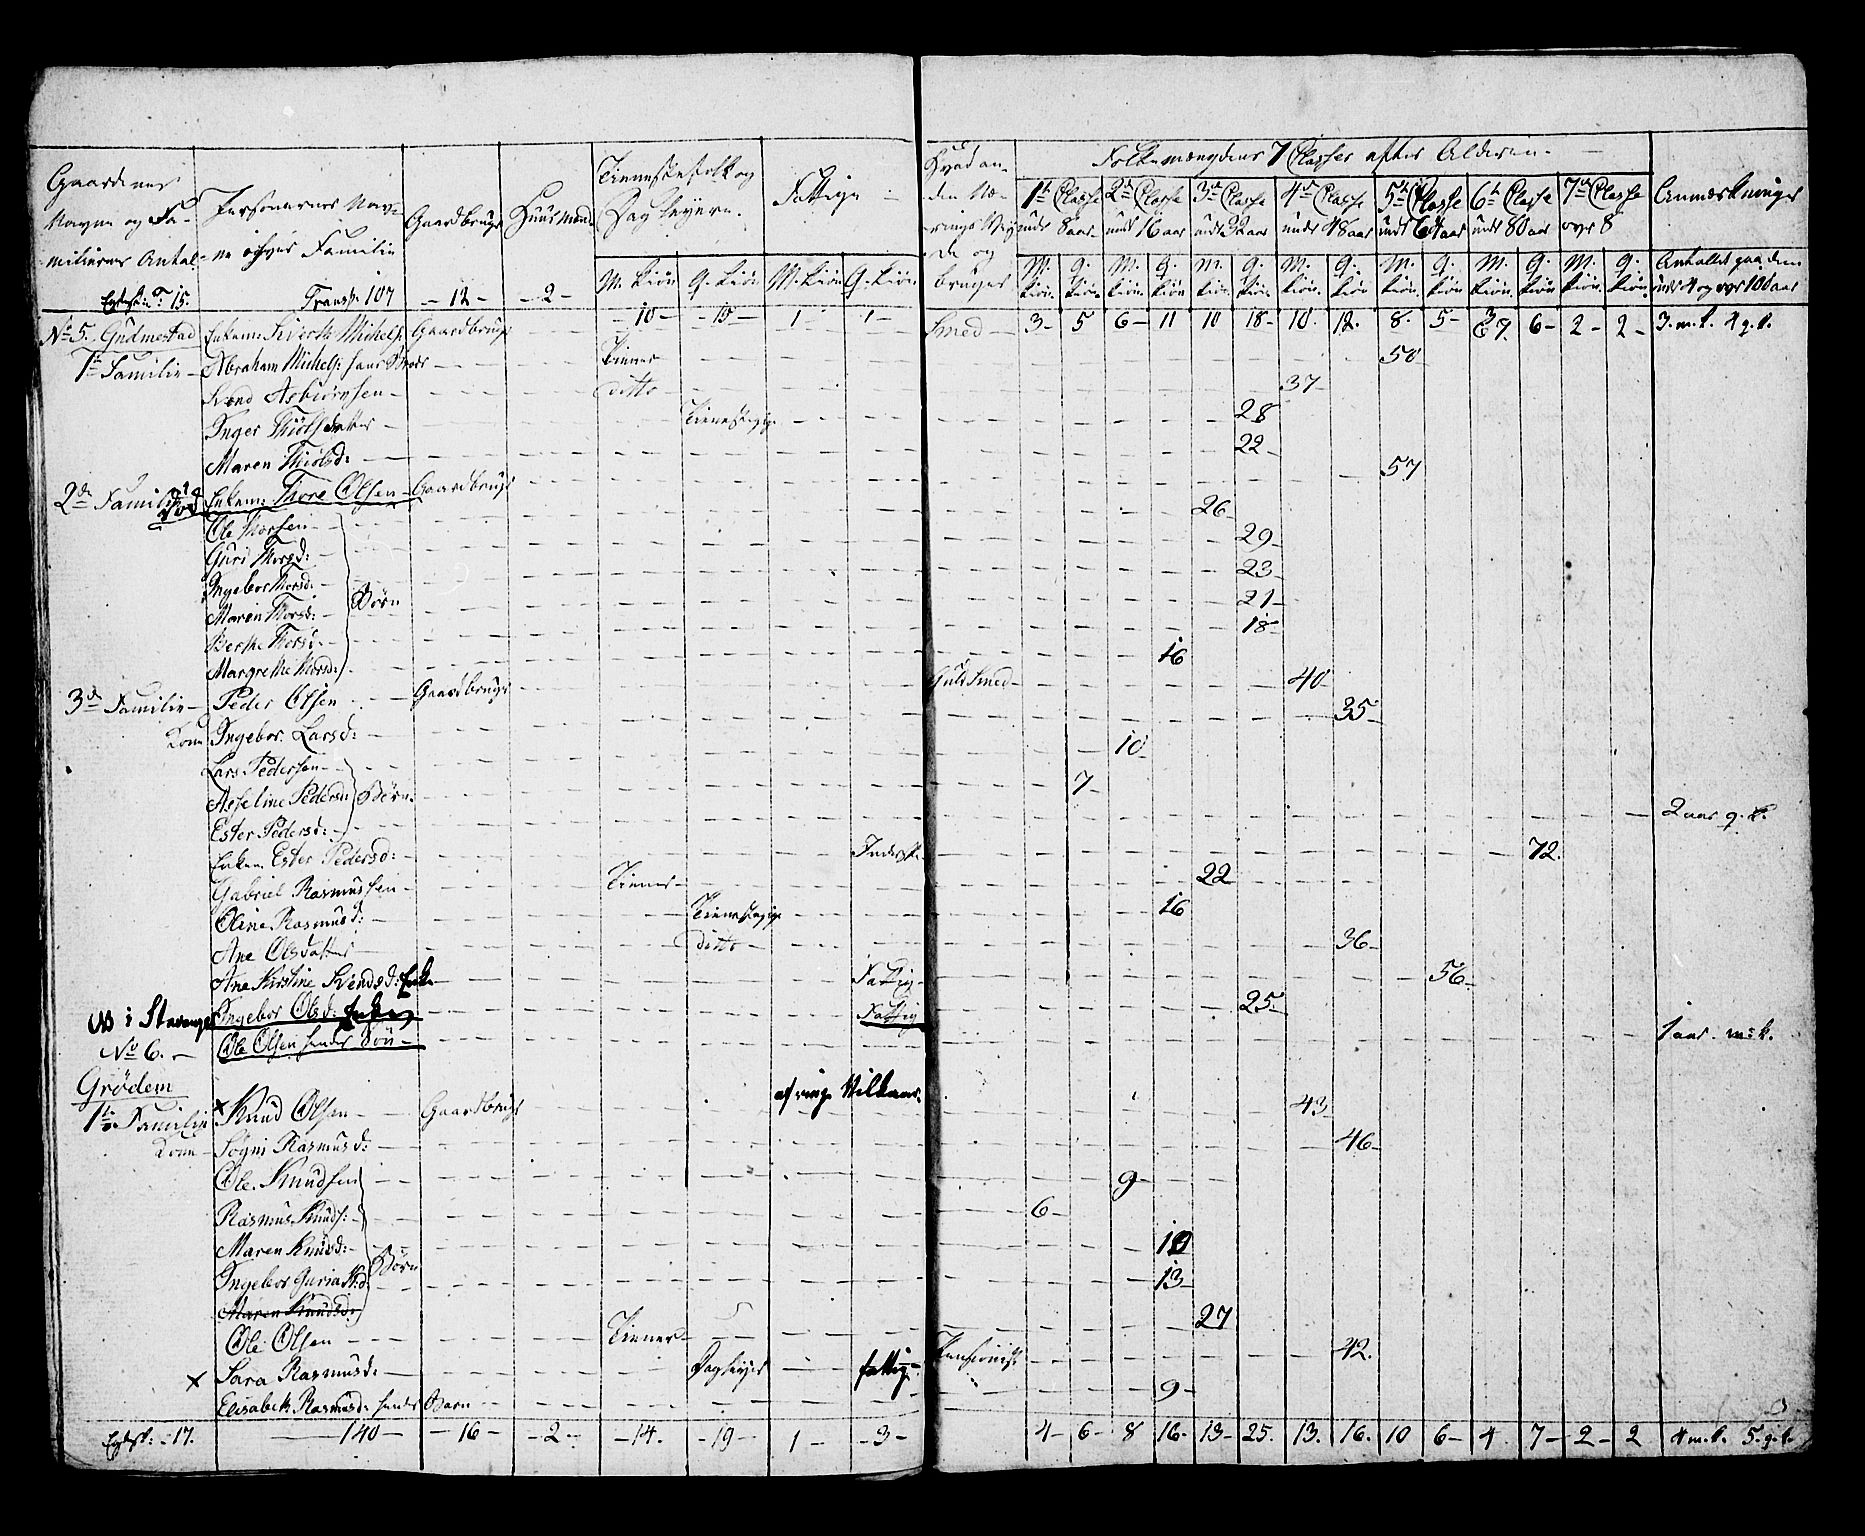 Gaardenes Navne og Familiernes Antal
Personernes Navne i hver Familie
Gaardbruger
Huusmænd
Tienestefolk og Dagleyere.
Fattige
Hvad anden Nærings Vey de og bruger
Folkemængdens 7 Classer efter Alderen.
1te Classe under 8 aar
2den Classe under 16 aar
3die Classe under 32 aar
4de Classe under 48 aar
5te Classe under 64 aar
6te Classe under 80 aar
7de Classe over 8
Anmærkninger
M. Kiøn Q. Kiøn M. Kiøn Q. Kiøn
M. Kiøn Q. Kiøn M. Kiøn Q. Kiøn M. Kiøn Q. Kiøn M. Kiøn Q. Kiøn M. Kiøn Q. Kiøn M. Kiøn Q. Kiøn M. Kiøn Q. Kiøn
15. Transp. 107 - 12 - - 2 - - 10 - - 15 - 1 - 1 -
No 5. Gudmestad Enkem: Sivert Michels: Gaardbruger Smed - 3 - 5 6 - 11 10 18 - 10. 12. 8. 5 - 7. 6 - 2 - 2 - 3. m. k. 4 q. k.
1te Familie - Abraham Michels: hans Broder Tiener 50 -
Svend Asbiørnsen - ditto - 37 -
Inger Thiølsdatter Tienestepige 28
Maren Thiølsd: 22 -
2den Familie Enkem: Thore Olsen - Gaardbruger 57
Ole Thorsen 26 -
Guri Thorsd: 29 -
Ingebor Thorsd: 23 -
Maren Thorsd: Børn 21 -
Berthe Thorsd: 18 -
Margrethe Thorsd: 16
3die Familie - Peder Olsen Gaardbruger Guldsmed - 40
Kone Ingebor. Larsd: 35 -
Lars Pedersen 10 -
Asseline Pedersd: Børn. 7 -
Ester Pedersd: 2 aar q. k.
Enken Ester Pedersd: Inderste 72.
Gabriel Rasmussen Tiener - 22
Oline Rasmusd: Tienestepige 16
Ane Olsdatter ditto - 36 -
Ane Kirstine Svendsd: Enke Fattig - 56 -
NB i Stavanger Ingebor Olsd: Enke Fattig 25 -
No 6. - Ole Olsen hendes Søn - 1 aar. m. k.
Grödem
1te Familie x Knud Olsen Gaardbruger af ringe Vilkaar. 43
Kone - Sögni Rasmusd: 46 -
Ole. Knudsen 9 -
Rasmus Knuds: 6 -
Maren Knudsd: Børn 10
Ingebor Guria K:d: 13 -
Maren Knudsd:
Ole Olsen Tiener 27
x Sara Rasmusd: Dagleyer fattig Pensionist 42.
Elisabeth Rasmusd: hendes Barn 9 -
17. 140 - - 16 - - 2 - - 14. - 19 - 1 - - 3 - 4 - 6 - 8 16 - 13 - 25. 13. 16. 10 6 - 4. 7 - 2 - 2 4 m. k. 5. q. k.